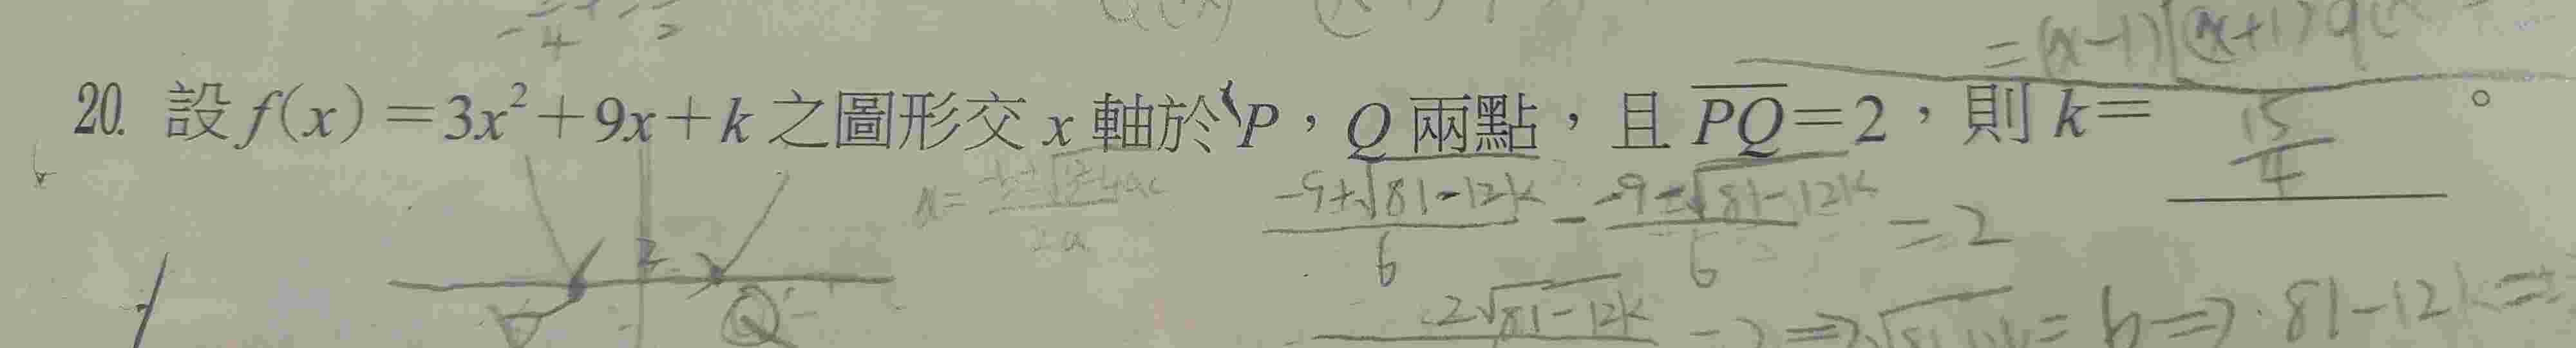 =(x-1)(x+1)q(
20. 設 f(x)=3x²+9x+k 之圖形交 x 軸於 P,Q 兩點,且 PQ=2,則 k= 15/4 。
(-9+√81-12k)/6 - (-9-√81-12k)/6 = 2
2 Q
2√81-12k ⇒ = 6 ⇒ 81-12k=